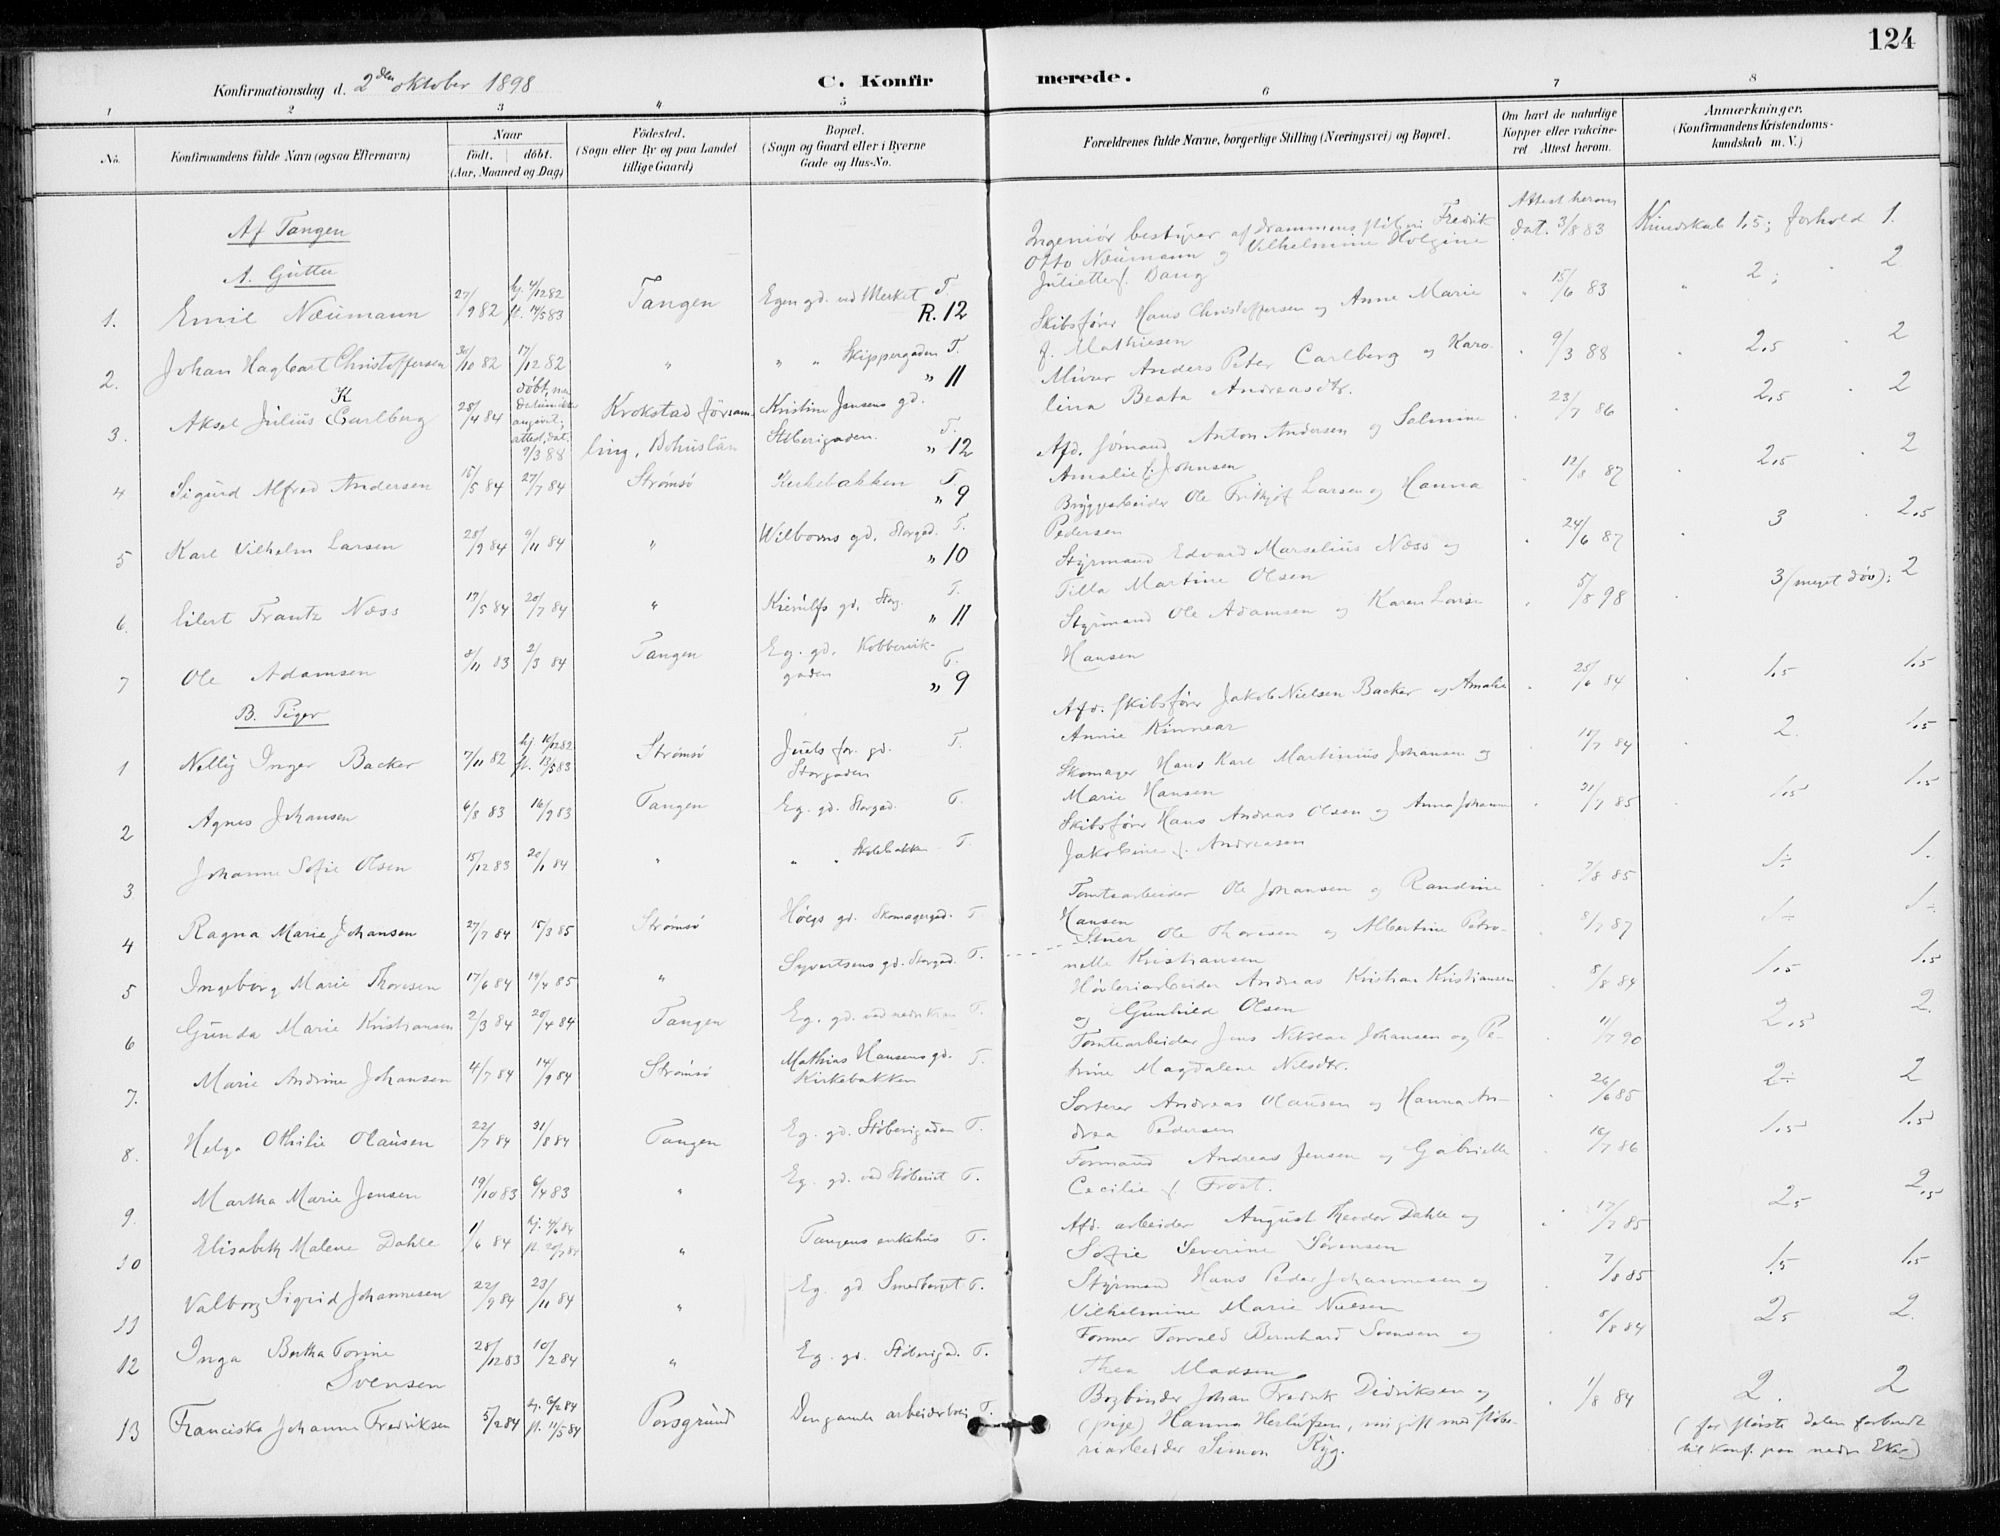 124
Konfirmationsdag d. 2den Oktober 1898
C. Konfir merede.
1 2 3 4 5 6 7 8
No.
Konfirmandens fulde Navn (ogsaa Efternavn)
Naar
födt. döbt.
(Aar, Maaned og Dag)
Födested.
(Sogn eller By og paa Landet
tillige Gaard)
Bopæl.
(Sogn og Gaard eller i Byerne
Gade og Hus-No.
Forældrenes fulde Navne, borgerlige Stilling (Næringsvei) og Bopæl.
Om havt de naturlige
Kopper eller vakcine-
ret Attest herom.
Anmærkninger.
(Konfirmandens Kristendoms-
kundskab m. V.)
Af Tangen
A. Gutter
1. Emil Neumann 27/9 82 hj. 4/12 82 Tangen Egen gd. ved Merket T.
fl. 14/5 83 R. 12
Ingeniör bestyrer af Drammens Fredrik
Otto Neumann og Vilhelmine Holgine
Juliette f. Bang
Attest herom
dat. 3/8 83 Kundskab 1,5; forhold 1.
2. Johan Hagbart Christoffersen 30/10 82 17/12 82 " " " Skippergaden T.
" 11
Skibsfører Hans Christoffersen og Anne Marie
f. Mathiesen
" 15/6 83 " 2; " 2
3. Aksel Julius Carlberg 28/4 84 döbt, men
K
datum ikke
angivet,
attest dat.
9/3 88
Krokstad församling, Bohuslän
Kristine Jensens gd.
Støberigaden. T.
" 12
Murer Anders Peter Carlberg og Karo-
lina Beata Andreasdtr.
" 9/3 88 " 2,5 " 2
4 Sigurd Alfred Andersen 15/5 84 27/7 84 Strømsø Kirkebakken T.
" 9
Afd. sømand Anton Andersen og Salmine
Amalie f. Johnsen
" 23/7 86 " 2,5 " 2
5 Karl Vilhelm Larsen 28/9 84 9/11 84 " Wilborns gd. Storgad. T.
" 10
Bryggearbeider Ole Frithjof Larsen og Hanna
Pedersen
" 12/8 87 " 2,5 2
6. Eilert Frantz Næss 17/5 84 20/7 84 " Kierulfs gd. Storg. T.
" 11
Styrmand Edvard Marselius Næss og
Tilla Martine Olsen
" 24/6 87 " 3 " 2,5
7 Ole Adamsen 2/11 83 2/3 84 Tangen Eg. gd. Kobbervik-
gaden T.
" 9
Styrmand Ole Adamsen og Karen Lovise
Hansen
" 5/8 98 " 3 (meget døv); 2
B. Piger
1 Nelly Inger Backer 7/11 82 hj. 16/12 82 Strømsø Juels for. gd. T.
fl. 13/5 83 Storgaden
Afd. skibsfører Jakob Nielsen Backer og Amalie
Annie Kinnear
" 25/6 84 " 1,5 1,5
2 Agnes Johansen 6/8 83 16/9 83 Tangen Eg. gd. Storgad. T.
Skomager Hans Karl Martinius Johansen og
Marie Hansen
" 18/7 84 " 2. 1,5
3 Johanne Sofie Olsen 15/12 83 20/1 84 " " " Skolebakken T.
Skibsfører Hans Andreas Olsen og Anna Johanne
Jakobine f. Andreasen
" 31/7 85 1,5 1,5
4 Ragna Marie Johansen 27/7 84 15/3 85 Strømsø Høegs gd. Skomagergad. T.
Tomtearbeider Ole Johansen og Randine
Hansen
" 7/8 85 1÷ 1.
5 Ingeborg Marie Thoresen 17/6 84 19/4 85 " Syvertsens gd. Storgad. T.
Stuer Ole Thoresen og Albertine Petro-
nelle Kristiansen
8/7 87 1÷ 1÷
6 Gunda Marie Kristiansen 2/3 84 20/4 84 Tangen Eg. gd. ved T.
Høvleriarbeider Andreas Kristian Kristiansen
og Gunhild Olsen
" 8/8 84 1,5 1,5
7. Marie Andrine Johansen 4/7 84 14/9 84 Strømsø Mathias Hansens gd. T.
Kirkebakken
Tomtearbeider Jens Nikolai Johansen og Pe-
trine Magdalene Nilsdtr.
" 11/7 90 2,5 2.
8. Helga Othilie Olausen 22/7 84 31/8 84 Tangen Eg. gd. Støberigaden T.
Sorterer Andreas Olausen og Hanna An-
drea Pedersen
" 26/6 85 2÷ 2
9. Martha Marie Jensen 19/10 83 6/4 83 " Eg. gd. ved Støberiet T.
Formand Andreas Jensen og Gabrielle
Cecilie f. Frost.
" 16/7 86 1,5 1,5
10 Elisabeth Malene Dahle 1/6 84 hj. 4/6 84 " Tangens enkehus T.
fl. 20/7 84
Afd. arbeider August Theodor Dahle og
Sofie Severine Sørensen
" 17/7 85 2,5 2,5
11 Valborg Sigrid Johannesen 22/9 84 23/11 84 " Eg. gd. T.
Styrmand Hans Peder Johannesen og
Vilhelmine Marie Nielsen
" 7/8 85 1,5 1,5
12 Inga Bertha Torine
Svensen 28/12 83 10/2 84 " Eg. gd. Støberigad. T.
Former Torvald Bernhard Svensen og
Thea Madsen
" 8/8 84 2,5 2.
13 Franciska Johanne Fredriksen 5/2 84 hj. 6/2 84 Porsgrund Den gamle arbeiderbrei T.
fl. 11/5 84
Bogbinder Johan Fredrik Didriksen og
(pige) Hanna Herlufsen, nu gift med støbe-
riarbeider Simon Ryg.
" 1/8 84 2. 2
(for største delen forberedt
til konf. paa nedre Eker)